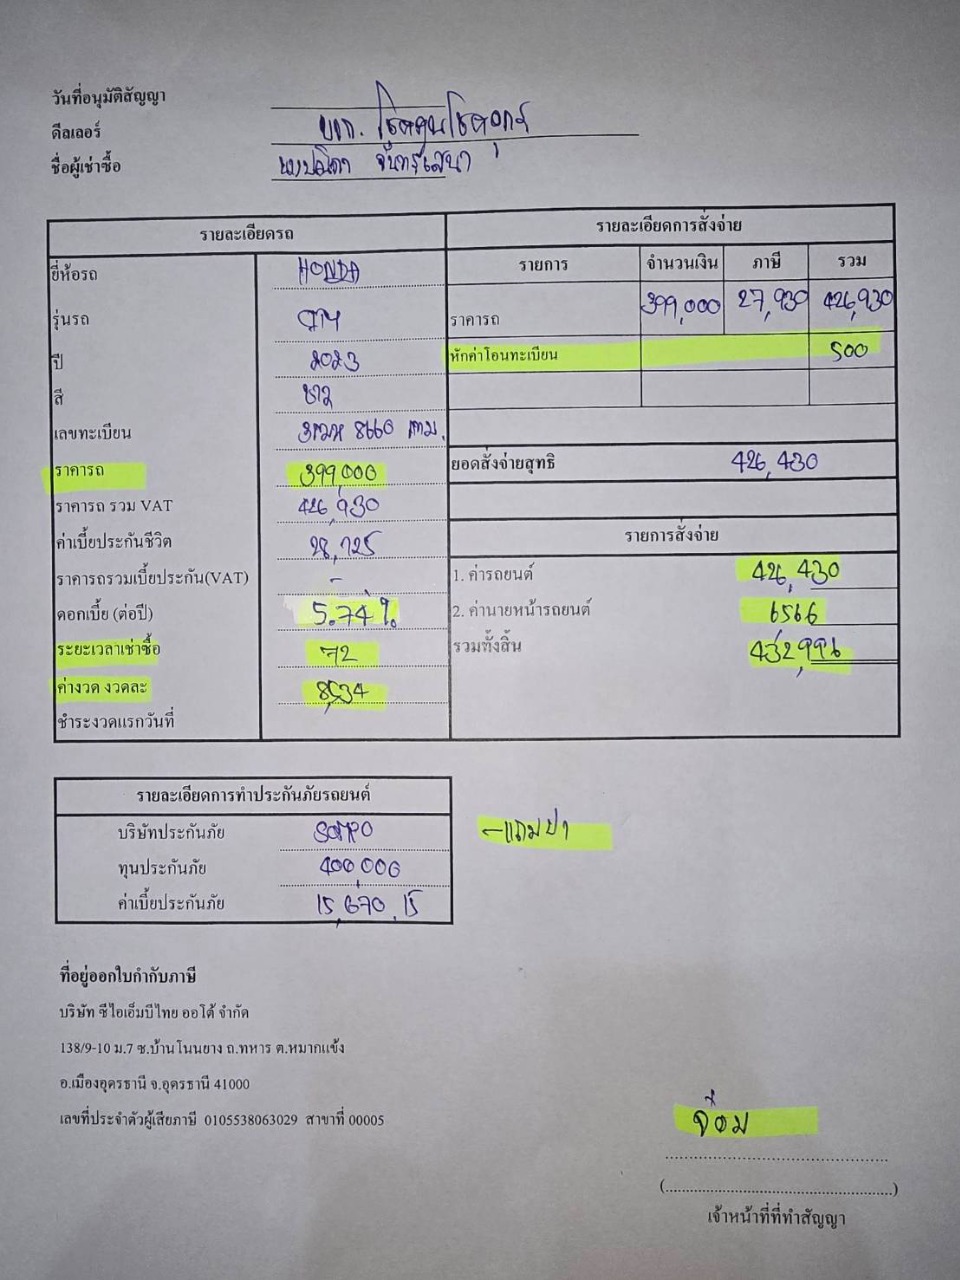 วันที่อนุมัติสัญญา
ดีลเลอร์ บจก.
ชื่อผู้เช่าซื้อ จันทร์เสนา
รายละเอียดรถ
ยี่ห้อรถ HONDA
รุ่นรถ CITY
ปี 2023
สี ขาว
เลขทะเบียน 8660 กทม.
ราคารถ 399,000
ราคารถ รวม VAT 426,930
ค่าเบี้ยประกันชีวิต 28,725
ราคารถรวมเบี้ยประกัน(VAT) -
ดอกเบี้ย (ต่อปี) 5.74 %
ระยะเวลาเช่าซื้อ 72
ค่างวด งวดละ 8,534
ชำระงวดแรกวันที่
รายละเอียดการสั่งจ่าย
รายการ จำนวนเงิน ภาษี รวม
ราคารถ 399,000 27,930 426,930
หักค่าโอนทะเบียน 500
ยอดสั่งจ่ายสุทธิ 426,430
รายการสั่งจ่าย
1. ค่ารถยนต์ 426,430
2. ค่านายหน้ารถยนต์ 6566
รวมทั้งสิ้น 432,996
รายละเอียดการทำประกันภัยรถยนต์
บริษัทประกันภัย SOMPO
ทุนประกันภัย 400,000
ค่าเบี้ยประกันภัย 15,670.15
- แถมป1
ที่อยู่ออกใบกำกับภาษี
บริษัท ซีไอเอ็มบีไทย ออโต้ จำกัด
138/9-10 ม.7 ซ.บ้านโนนยาง ถ.ทหาร ต.หมากแข้ง
อ.เมืองอุดรธานี จ.อุดรธานี 41000
เลขที่ประจำตัวผู้เสียภาษี 0105538063029 สาขาที่ 00005
(................................................)
เจ้าหน้าที่ที่ทำสัญญา